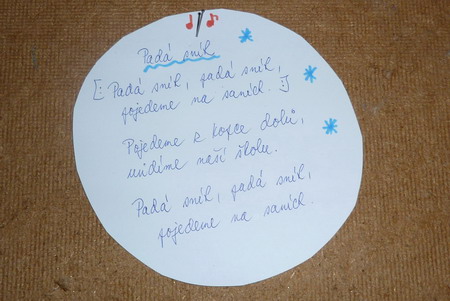 Padá sníh
[: Padá sníh, padá sníh,
pojedeme na saních. :]
Pojedeme z kopce dolů,
uvidíme naší školu.
Padá sníh, padá sníh,
pojedeme na saních.